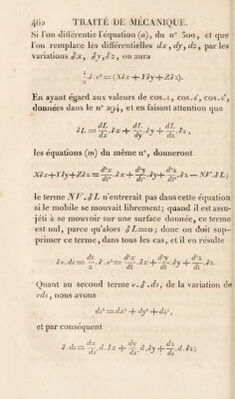 460 TRAITÉ DE MÉCANIQUE.
Si l'on différentie l'équation (a), du n° 500, et que
l'on remplace les différentielles dx, dy, dz, par les
variations δx, δy, δz, on aura
½ δ.v² = (Xδx + Yδy + Zδz).
En ayant égard aux valeurs de cos.ε, cos.ε', cos.ε'',
données dans le n° 294, et en faisant attention que
δL = dL/dx . δx + dL/dy . δy + dL/dz . δz,
les équations (m) du même n°, donneront
Xδx + Yδy + Zδz = d²x/dt² . δx + d²y/dt² . δy + d²z/dt² . δz — NV . δL;
le terme NV . δL n'entrerait pas dans cette équation
si le mobile se mouvait librement; quand il est assu-
jéti à se mouvoir sur une surface donnée, ce terme
est nul, parce qu'alors δL = 0; donc on doit sup-
primer ce terme, dans tous les cas, et il en résulte
δv.ds = dt/2 . δ.v² = d²x/dt . δx + d²y/dt . δy + d²z/dt . δz.
Quant au second terme v.δ.ds, de la variation de
vds, nous avons
ds² = dx² + dy² + dz²,
et par conséquent
δ.ds = dx/ds . d.δx + dy/ds . d.δy + dz/ds . d.δz;